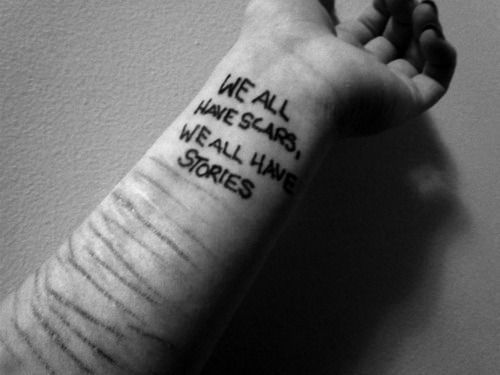 WE ALL
HAVE SCARS,
WE ALL HAVE
STORIES